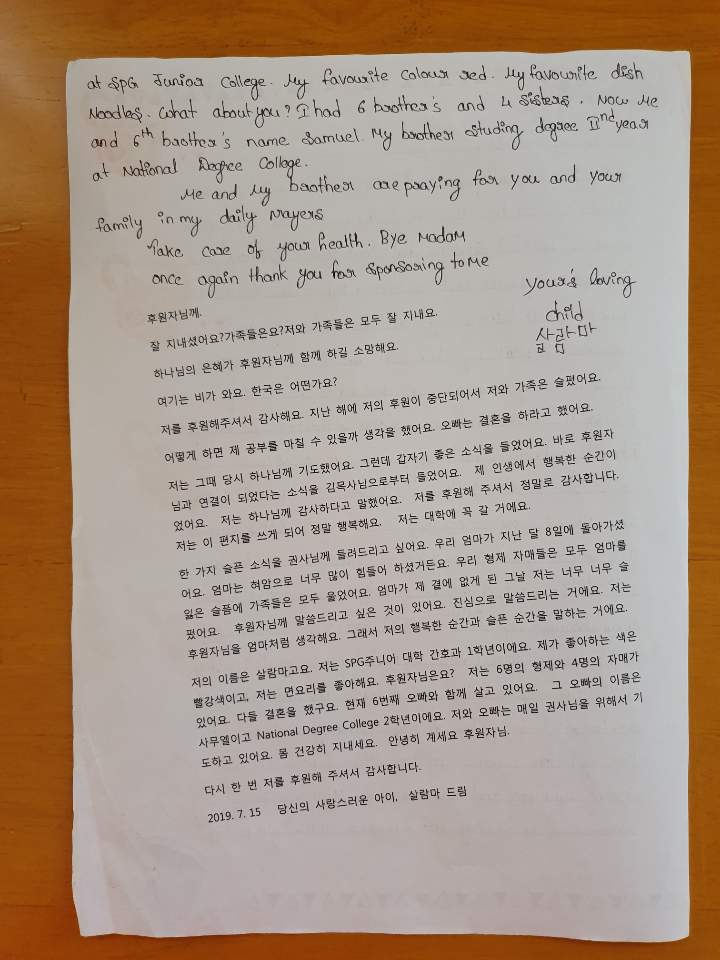 at SPG Junior College. My favourite colour red. My favourite dish
Noodles. What about you? I had 6 brother's and 4 sisters. Now Me
and 6th brother's name Samuel. My brother studing degree IInd year
at National Degree College.
Me and My brother are praying for you and your
family in my daily prayers
Take care of your health. Bye Madam
once again thank you for sponsoring to Me
your's loving
child
살람마
후원자님께.
잘 지내셨어요?가족들은요?저와 가족들은 모두 잘 지내요.
하나님의 은혜가 후원자님께 함께 하길 소망해요.
여기는 비가 와요. 한국은 어떤가요?
저를 후원해주셔서 감사해요. 지난 해에 저의 후원이 중단되어서 저와 가족은 슬펐어요.
어떻게 하면 제 공부를 마칠 수 있을까 생각을 했어요. 오빠는 결혼을 하라고 했어요.
저는 그때 당시 하나님께 기도했어요. 그런데 갑자기 좋은 소식을 들었어요. 바로 후원자
님과 연결이 되었다는 소식을 김목사님으로부터 들었어요. 제 인생에서 행복한 순간이
었어요. 저는 하나님께 감사하다고 말했어요. 저를 후원해 주셔서 정말로 감사합니다.
저는 이 편지를 쓰게 되어 정말 행복해요. 저는 대학에 꼭 갈 거에요.
한 가지 슬픈 소식을 권사님께 들려드리고 싶어요. 우리 엄마가 지난 달 8일에 돌아가셨
어요. 엄마는 혀암으로 너무 많이 힘들어 하셨거든요. 우리 형제 자매들은 모두 엄마를
잃은 슬픔에 가족들은 모두 울었어요. 엄마가 제 곁에 없게 된 그날 저는 너무 너무 슬
펐어요. 후원자님께 말씀드리고 싶은 것이 있어요. 진심으로 말씀드리는 거에요. 저는
후원자님을 엄마처럼 생각해요. 그래서 저의 행복한 순간과 슬픈 순간을 말하는 거에요.
저의 이름은 살람마고요. 저는 SPG주니어 대학 간호과 1학년이에요. 제가 좋아하는 색은
빨강색이고, 저는 면요리를 좋아해요. 후원자님은요? 저는 6명의 형제와 4명의 자매가
있어요. 다들 결혼을 했구요. 현재 6번째 오빠와 함께 살고 있어요. 그 오빠의 이름은
사무엘이고 National Degree College 2학년이에요. 저와 오빠는 매일 권사님을 위해서 기
도하고 있어요. 몸 건강히 지내세요. 안녕히 계세요 후원자님.
다시 한 번 저를 후원해 주셔서 감사합니다.
2019. 7. 15 당신의 사랑스러운 아이, 살람마 드림